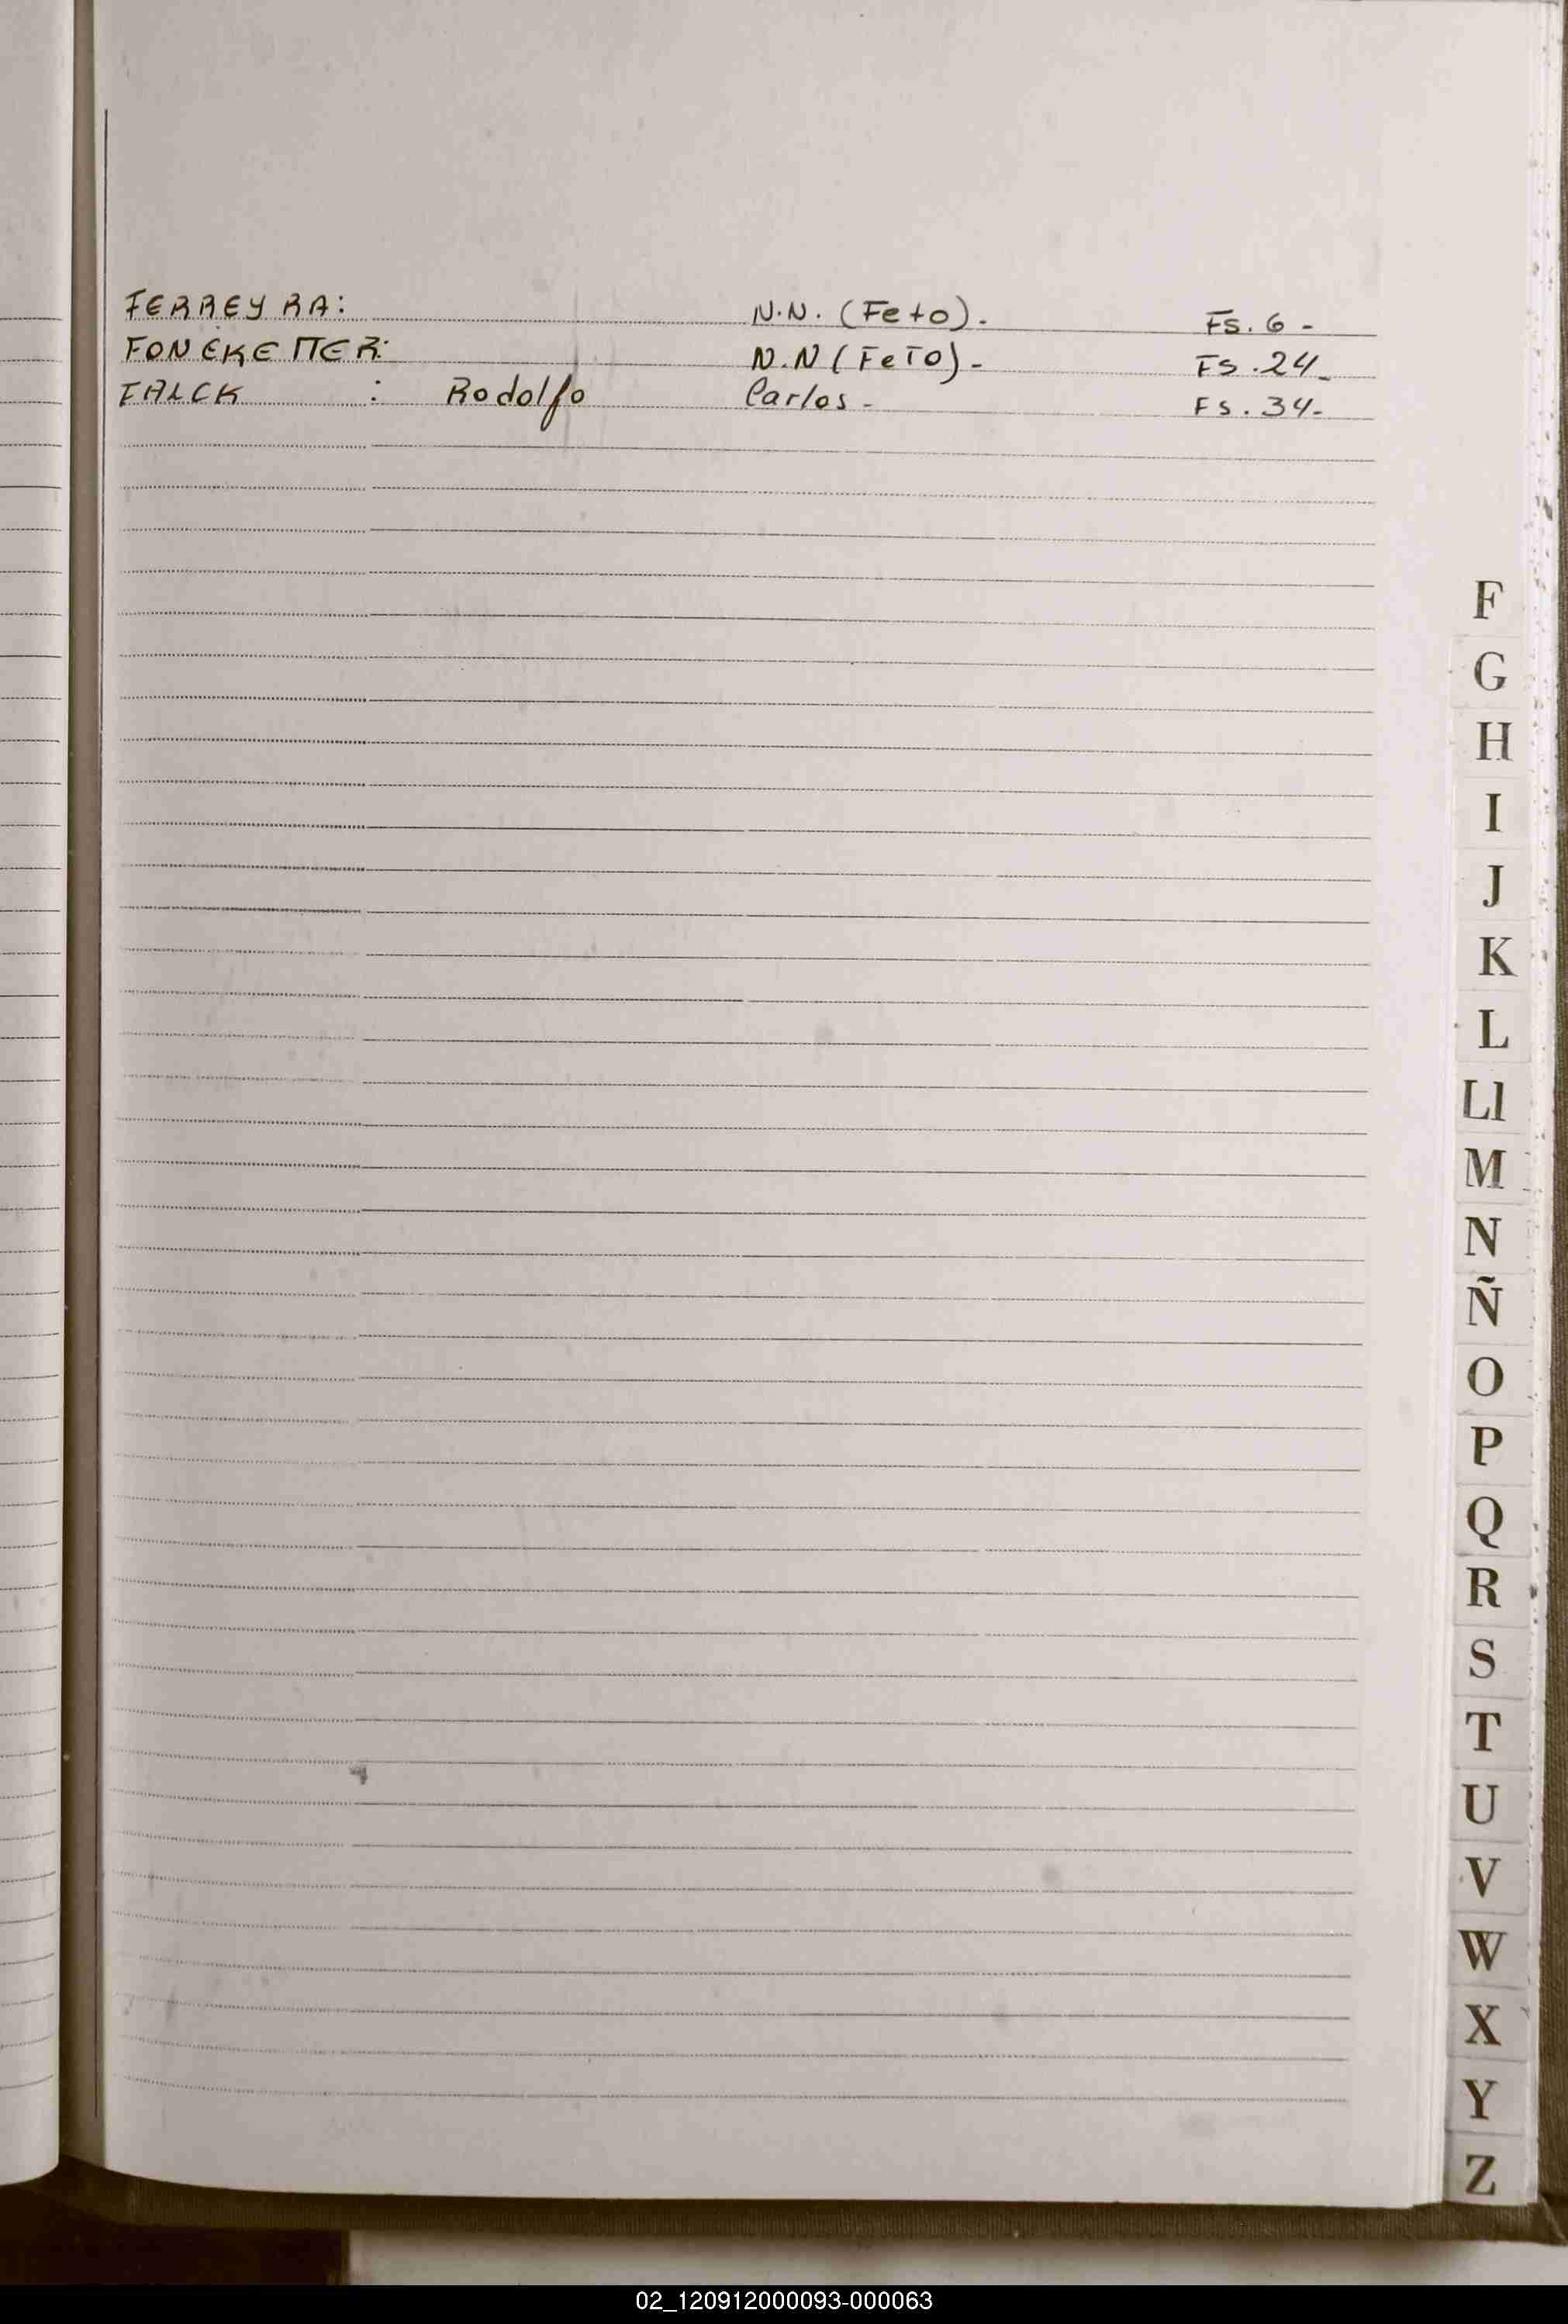 FERREYRA: N.N. (Feto). Fs. 6 -
N.N (FeTo) - FS. 24_
FALCK : Rodolfo Carlos - Fs. 34-
F
G
H
I
J
K
L
Ll
M
N
Ñ
O
P
Q
R
S
T
U
V
W
X
Y
Z
02_120912000093-000063